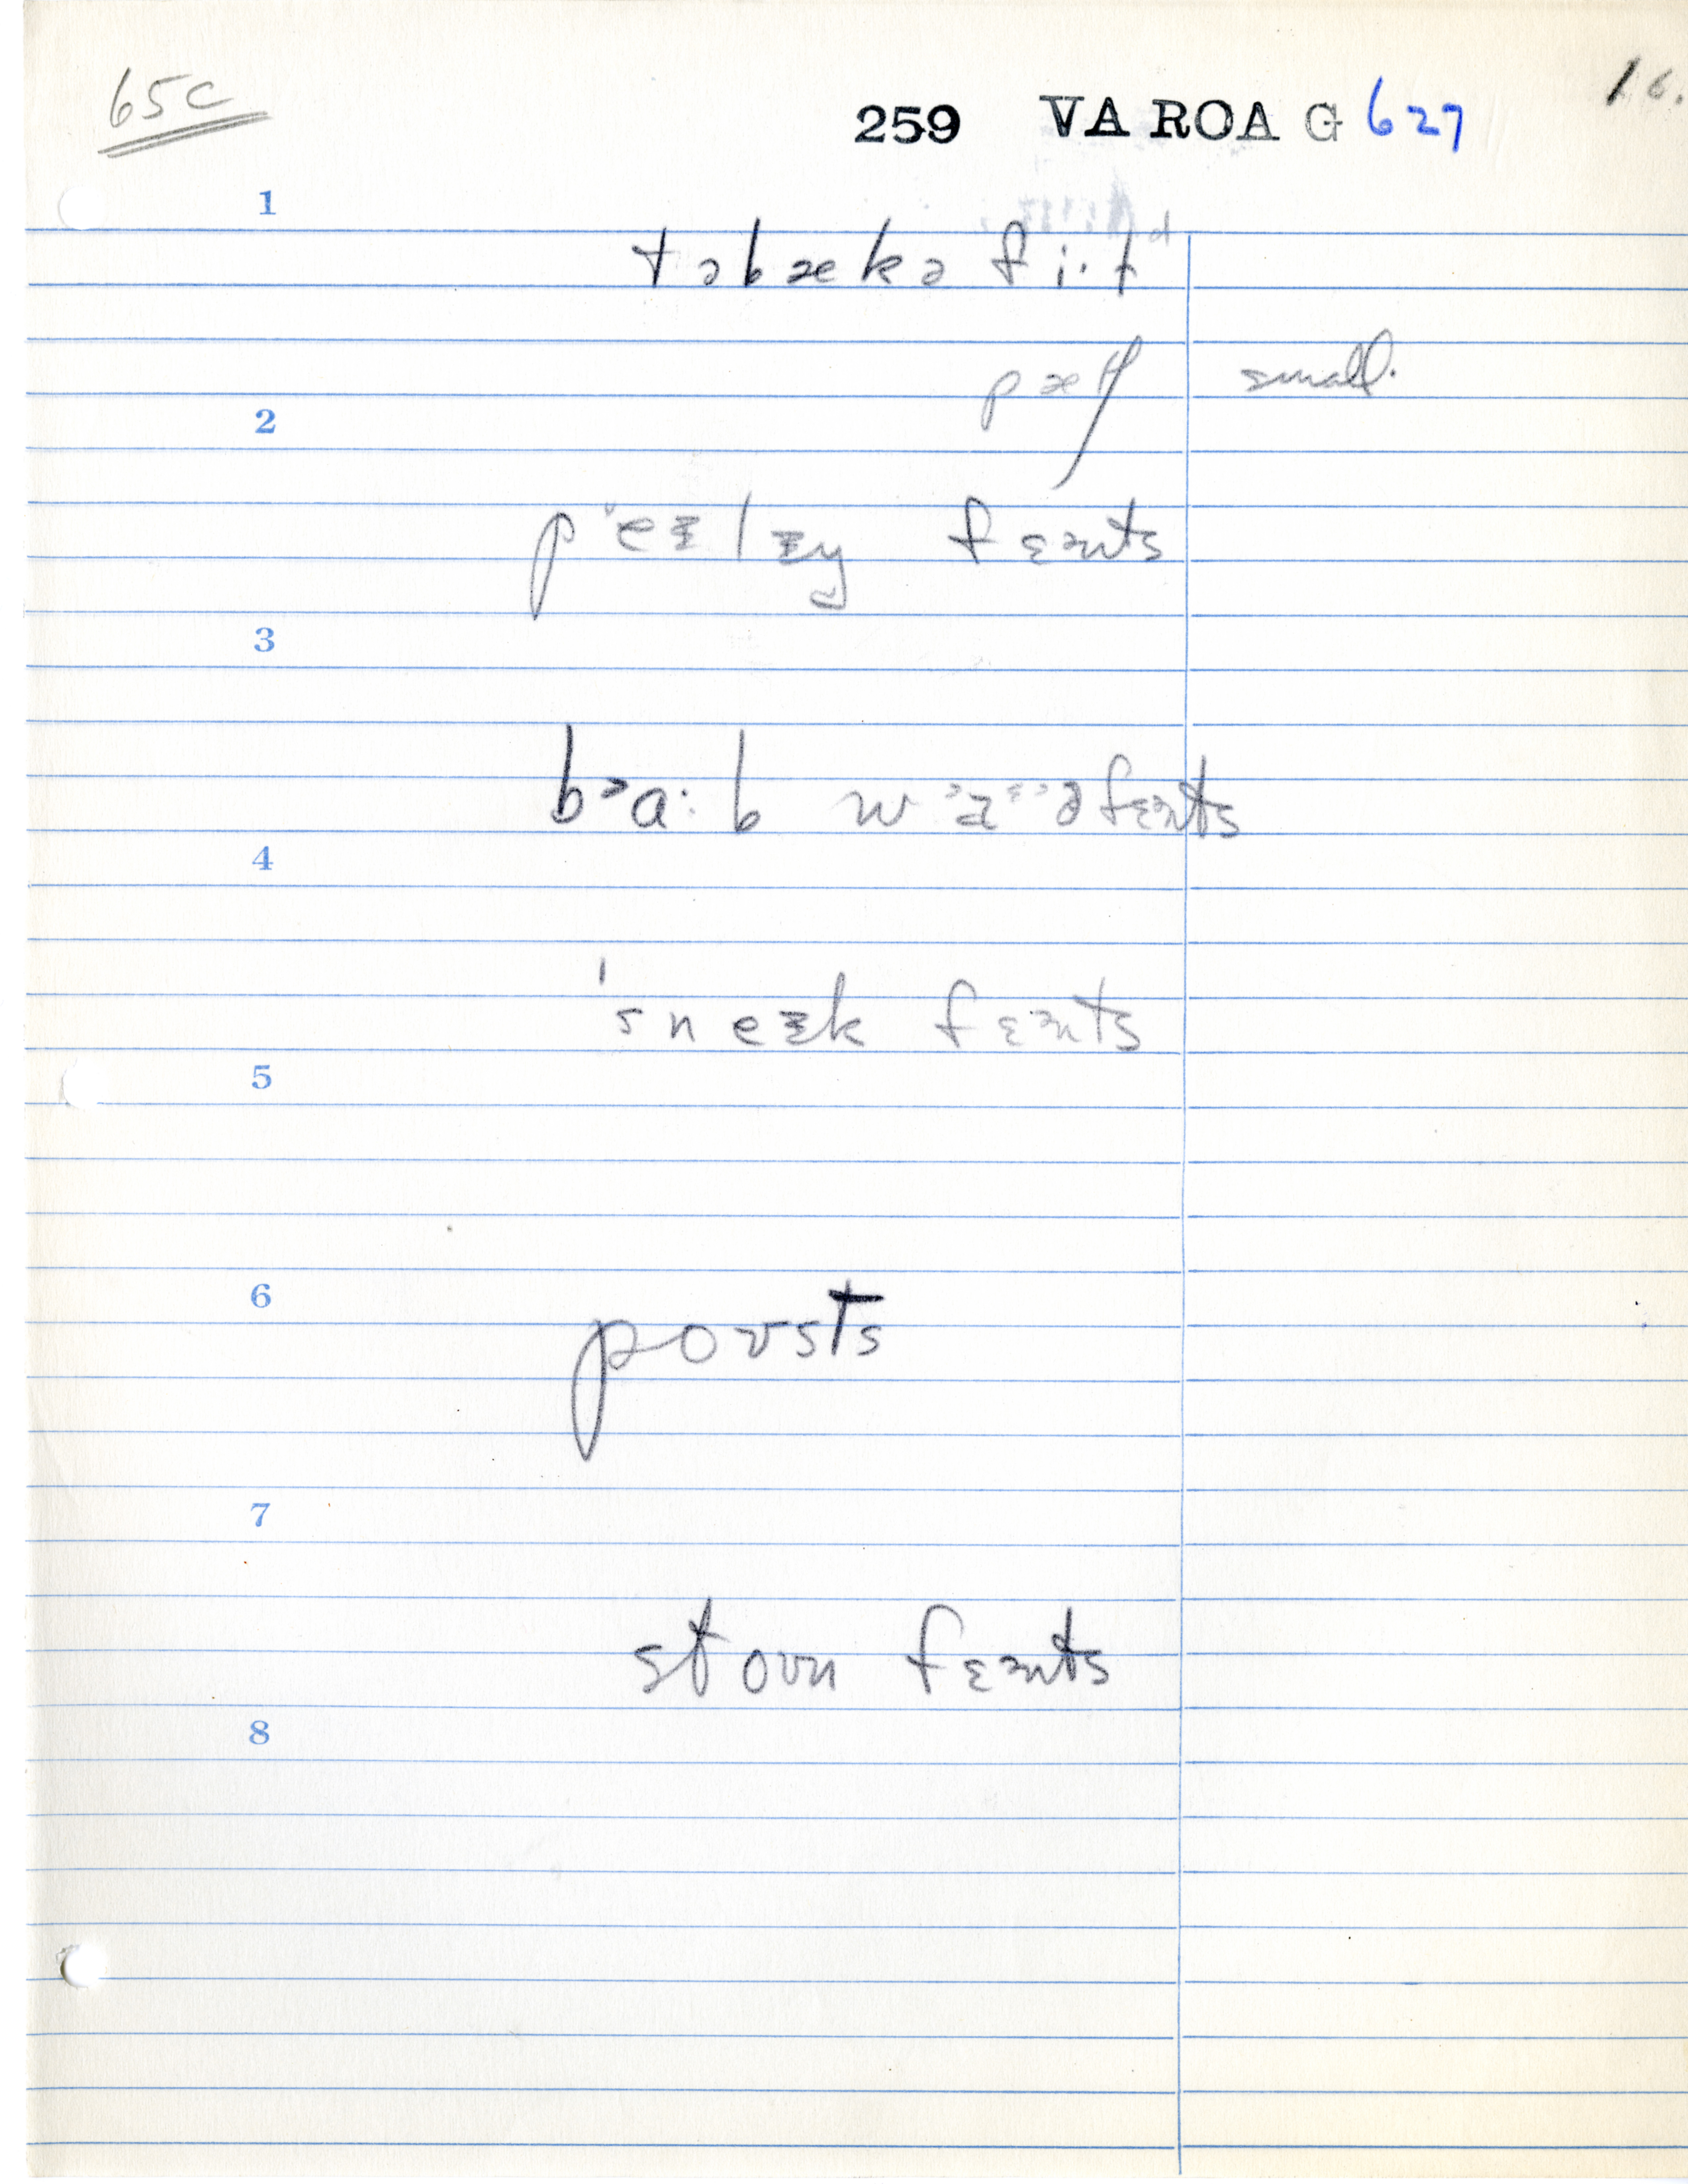 65c
259 VA ROA G 627
16.
1
təbækə fi·ɫᵈ
pætʃ small.
2
p'eᵻlɪŋ fɛᵊnts
3
bᵊa·b waᵊᵋᵊə fɛᵊnts
4
'sneᵻk fɛᵊnts
5
6
poʊsts
7
stoʊn fɛᵊnts
8